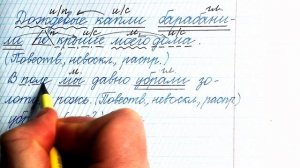 и/п и/с гл.
Дождевые капли барабани-
и/с и/с
ли по крыше моего дома.
(Повеств, невоскл, распр.)
м. гл.
В поле мы давно убрали зо-
рожь. (Повеств, невоскл, распр)